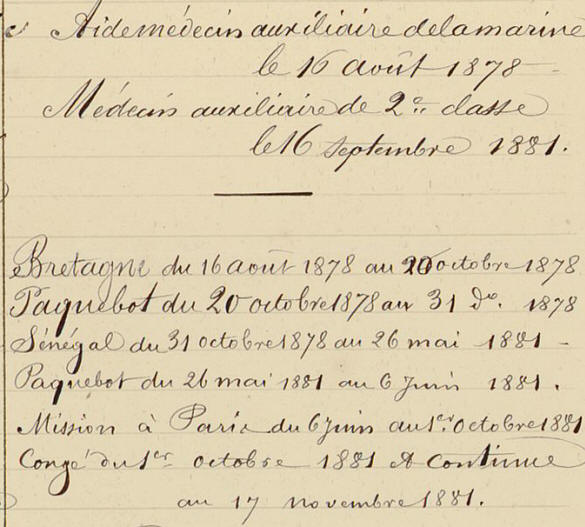 Aide médecin auxiliaire de la marine
le 16 août 1878
Médecin auxiliaire de 2e classe
le 16 septembre 1881.
Bretagne du 16 août 1878 au 20 octobre 1878
Paquebot du 20 octobre 1878 au 31 do. 1878
Sénégal du 31 octobre 1878 au 26 mai 1881 -
Paquebot du 26 mai 1881 au 6 Juin 1881.
Mission à Paris du 6 Juin au 1er. Octobre 1881
Congé du 1er octobre 1881 et continue
au 17 novembre 1881.